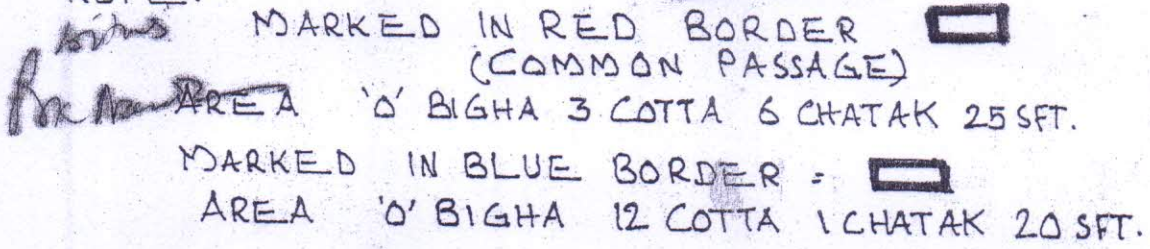 MARKED IN RED BORDER
(COMMON PASSAGE)
AREA 'O' BIGHA 3 COTTA 6 CHATAK 25 SFT.
MARKED IN BLUE BORDER =
AREA 'O' BIGHA 12 COTTA 1 CHATAK 20 SFT.